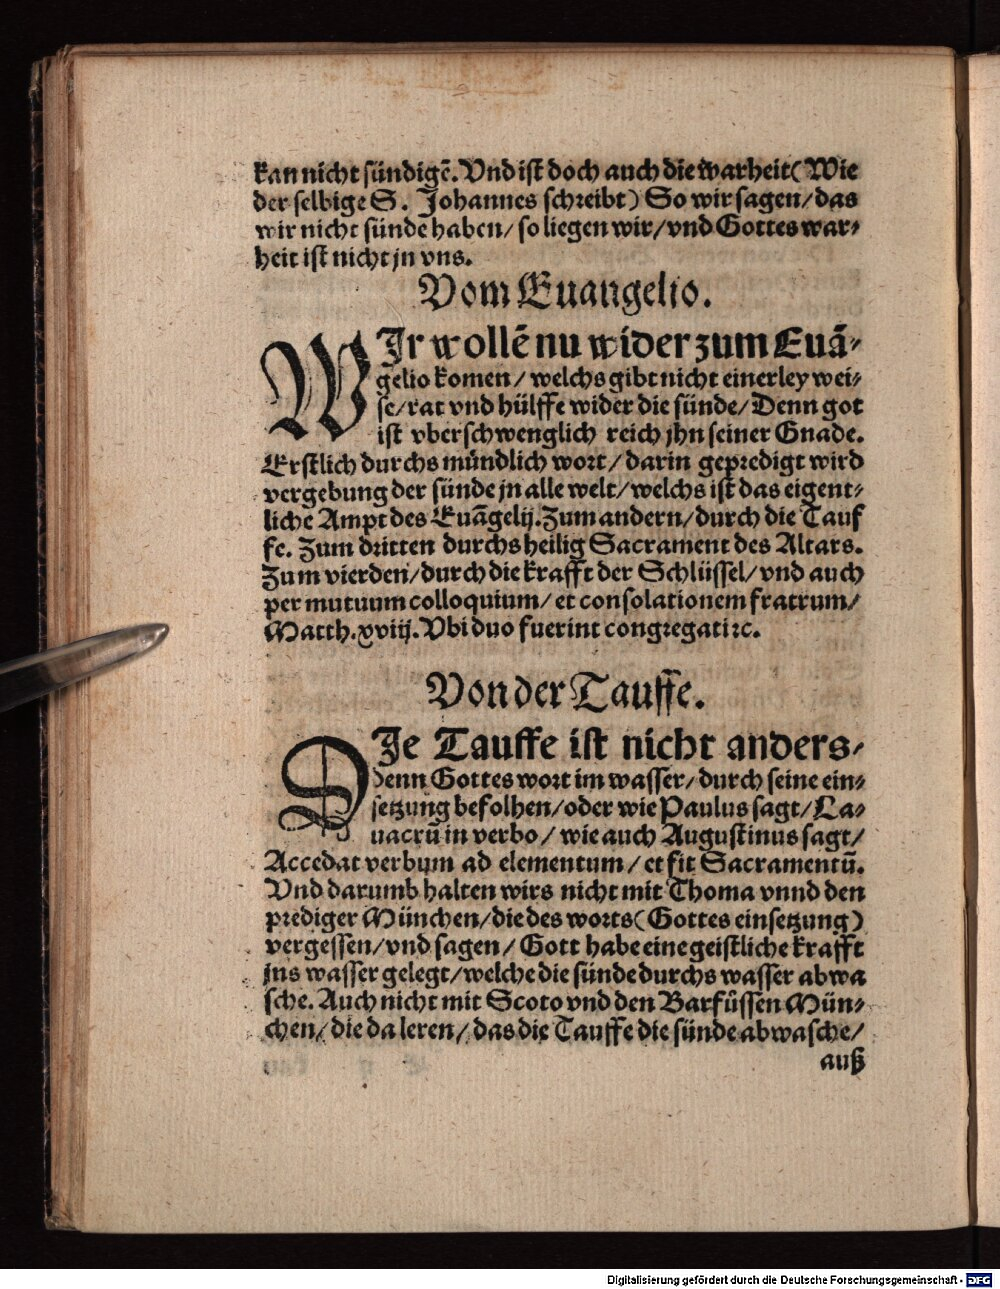 kan nicht sündigē. Vnd ist doch auch die warheit (Wie
der selbige S. Johannes schreibt) So wir sagen / das
wir nicht sünde haben / so liegen wir / vnd Gottes war-
heit ist nicht jn vns.
Vom Euangelio.
WJr wollē nu wider zum Euā-
gelio komen / welchs gibt nicht einerley wei-
se / rat vnd hülffe wider die sünde / Denn got
ist vberschwenglich reich jhn seiner Gnade.
Erstlich durchs mündlich wort / darin gepredigt wird
vergebung der sünde jn alle welt / welchs ist das eigent-
liche Ampt des Euāgelij. Zum andern / durch die Tauf
fe. Zum dritten durchs heilig Sacrament des Altars.
Zum vierden / durch die krafft der Schlüssel / vnd auch
per mutuum colloquium / et consolationem fratrum /
Matth. xviij. Vbi duo fuerint congregati ꝛc.
Von der Tauffe.
DJe Tauffe ist nicht anders-
denn Gottes wort im wasser / durch seine ein-
setzung befolhen / oder wie Paulus sagt / La-
uacrū in verbo / wie auch Augustinus sagt /
Accedat verbum ad elementum / et fit Sacramentū.
Vnd darumb halten wirs nicht mit Thoma vnnd den
prediger München / die des worts (Gottes einsetzung)
vergessen / vnd sagen / Gott habe eine geistliche krafft
jns wasser gelegt / welche die sünde durchs wasser abwa
sche. Auch nicht mit Scoto vnd den Barfüssen Mün-
chen / die da leren / das die Tauffe die sünde abwasche /
auß
Digitalisierung gefördert durch die Deutsche Forschungsgemeinschaft - DFG